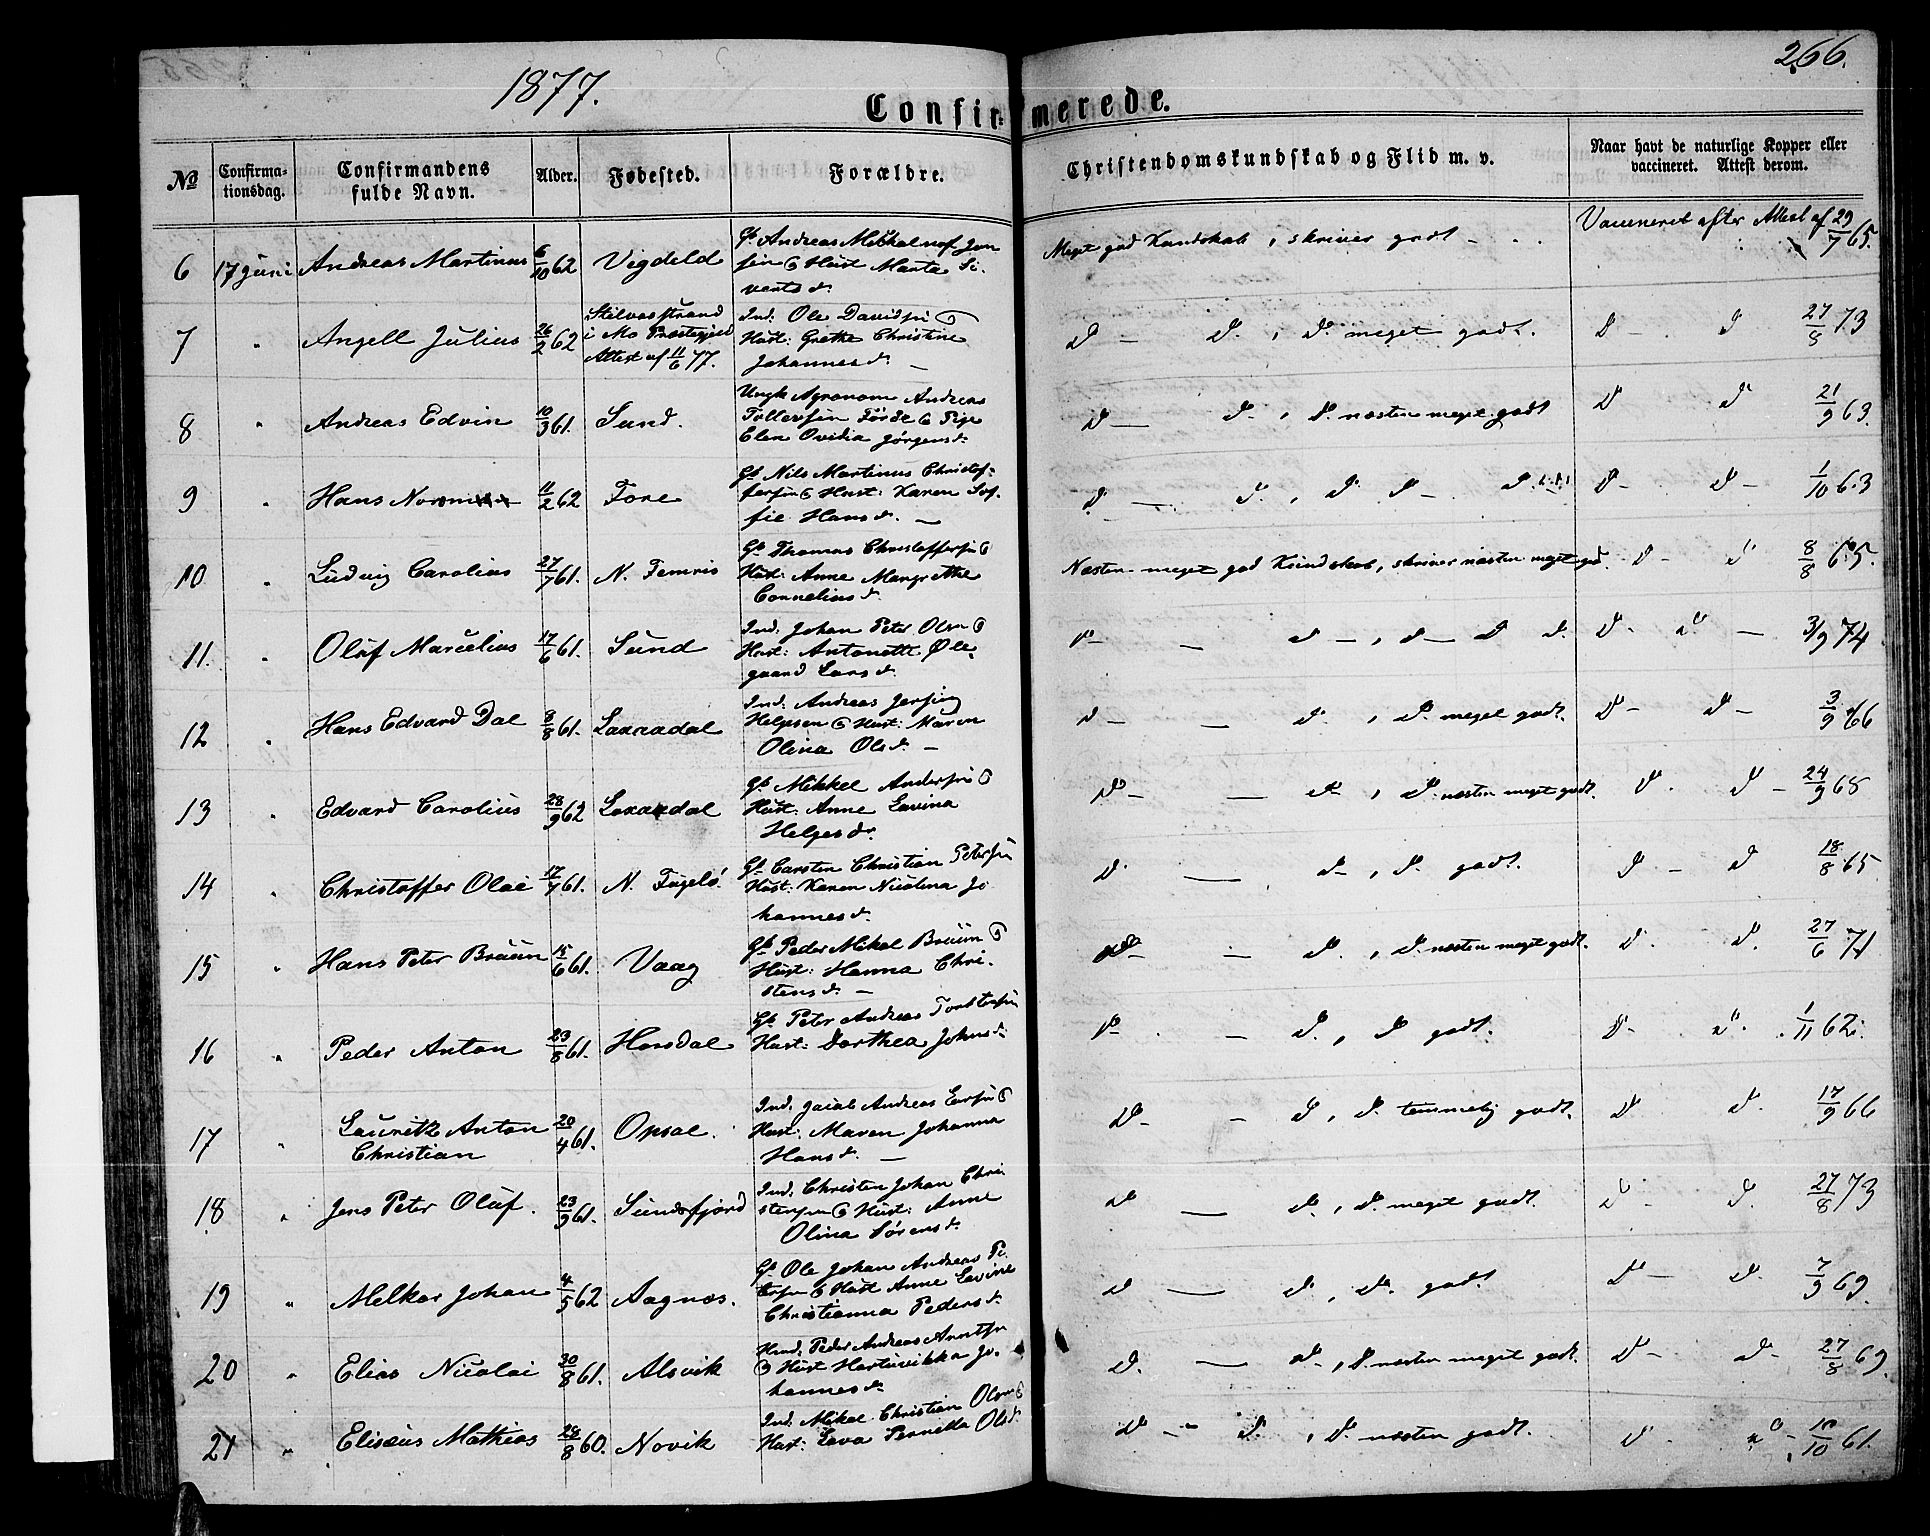 1877.
266.
Confirmerede.
No
Confirma-
tionsdag.
Confirmandens
fulde Navn.
Alder.
Fødested.
Forældre.
Christendomskundskab og Flid m. v.
Naar havt de naturlige Kopper eller
vaccineret. Attest derom.
6 17 Juni Andreas Martinus 6/10 62 Vigdeld
Gb. Andreas Mickal
Hust Marta Si-
verts d.
Meget god Kundskab, skriver godt
Vaccineret efter Attest af 29/7 65.
7 " Angell Julius 26/2 62
Stilvasstrand
i Mo Præstegjeld
Attest af 11/6 77.
Ind. Ole Davidsen &
Hust: Grethe Christine
Johannesd. —
D — D. , D. meget godt.
D — D 27/8 73
8 " Andreas Edvin 10/3 61. Sund.
Ungk Agronom Andreas
Tollefsen Förde & Pige
Elen Ovidia Jørgensd.
D — D. , D. næsten meget godt
D D 21/9 63.
9 " Hans Norman 11/2 62 Fore
Gb Nils Martinus Christof-
fersen & Hust: Karen Sof-
fie Hansd. —
D — D. , D. D — D.
D — D — 1/10 63
10 " Ludvig Carolius 27/7 61. N. Femris
Gb. Thomas Christoffersen &
Hust: Anne Margrethe
Corneliusd.
Næsten meget god Kundskab, skriver næsten meget god.
D — D 8/8 65.
11. " Oluf Marcelius 17/6 61. Sund
Ind. Johan Peter Olsen &
Hust: Antonette Øle-
gaard Larsd.
D — — D — , D — D D.
D — D — 3/9 74
12 " Hans Edvard Dal 8/8 61. Laxaadal
Ind. Andreas
Helgesen & Hust: Maren
Olina Olsd. —
D — — D. , D. meget godt.
D — D — 3/9 66
13 " Edvard Carolius 28/9 62 Laxaadal
Gb. Mikkel Andersen &
Hust: Anne Lavina
Helgesd.
D — — D , D. næsten meget godt.
D. D — 24/9 68
14 " Christoffer Olai 17/7 61. N. Fugelø.
Gb. Carsten Christian Petersen
Hust: Karen Nicolina Jo
hannesd.
D. — D — , D. godt.
D — D 18/8 65.
15 " Hans Peter Bruun 15/6 61. Vaag
Gb. Peder Mikal Bruun &
Hust: Hanna Chri-
stensd. —
D — — D. , D. næsten meget godt.
D. D. 27/6 71
16 " Peder Anton 23/8 61. Horsdal
Gb. Peter Andreas
Hust: Dorthea Johnsd.
D — — D. , D godt.
D — D. 1/11 62.
17 " Lauritz Anton
Christian 20/4 61. Opsal.
Ind. Jacob Andreas &
Hust: Maren Johanna
Hansd. —
D — — D , D. temmelig godt.
D D. 17/9 66
18 " Jens Peter Oluf. 23/9 61. Sundsfjord
Ind. Christen Johan Chri
stensen & Hust: Anne
Olina Sørensd.
D — D. , D. meget godt.
D — D. 27/8 73
19 " Melker Johan 4/5 62 Aagnæs.
Gb. Ole Johan Andreas Pe-
dersen & Hust Anne Lavine
Christianna Pedersd.
D — D , D. godt.
D — D. 7/9 69.
20 " Elias Nicolai 30/8 61. Alsvik
Hmd. Peder Andreas Arntsen
& Hust Hartvikka Jo-
hannesd.
D. — D — , D. næsten meget godt.
D — D — 27/8 69.
21 " Elisæus Mathias 28/8 60. Novik
Ind. Mikal Christian Olsen &
Hust: Lava Pernella Olsd.
D — D. , D. næsten godt.
D D 10/10 61.